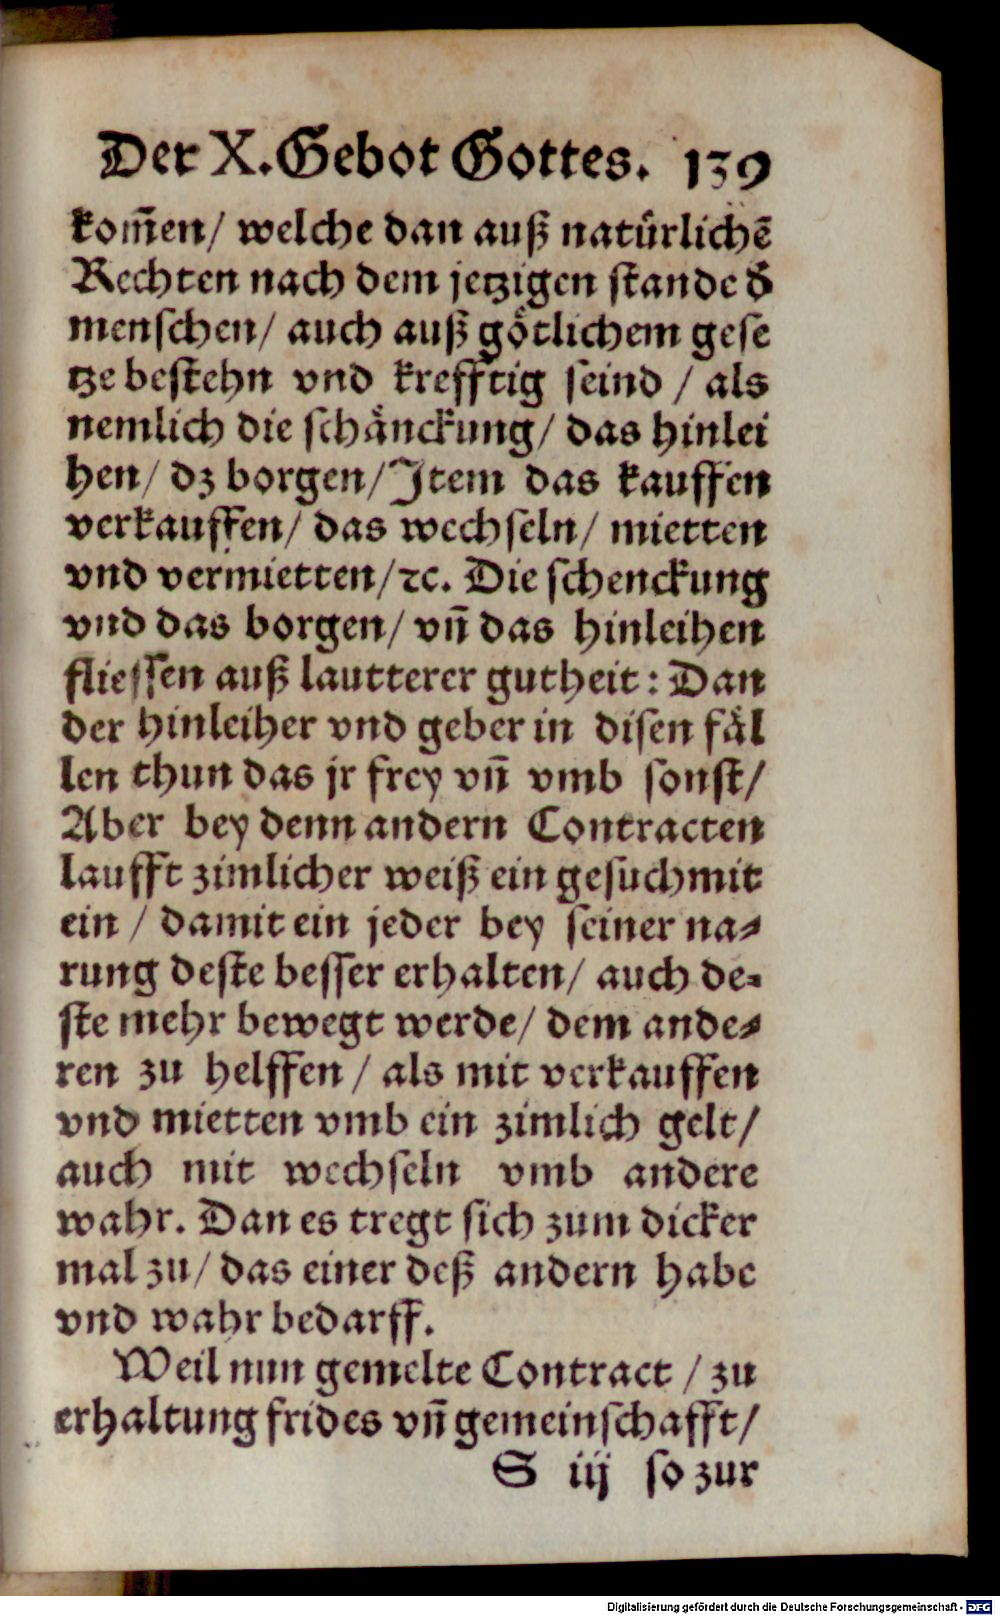 Der X. Gebot Gottes. 139
kom̃en/ welche dan auß natuͤrlichẽ
Rechten nach dem jetzigen stande d̕
menschen/ auch auß goͤtlichem gese
tze bestehn vnd krefftig seind / als
nemlich die schaͤnckung/ das hinlei
hen/ dz borgen/ Item das kauffen
verkauffen/ das wechseln/ mietten
vnd vermietten/ ꝛc. Die schenckung
vnd das borgen/ vñ das hinleihen
fliessen auß lautterer gutheit: Dan
der hinleiher vnd geber in disen faͤl
len thun das jr frey vñ vmb sonst/
Aber bey denn andern Contracten
laufft zimlicher weiß ein gesuch mit
ein / damit ein jeder bey seiner na⸗
rung deste besser erhalten/ auch de⸗
ste mehr bewegt werde/ dem ande⸗
ren zu helffen / als mit verkauffen
vnd mietten vmb ein zimlich gelt/
auch mit wechseln vmb andere
wahr. Dan es tregt sich zum dicker
mal zu/ das einer deß andern habe
vnd wahr bedarff.
Weil nun gemelte Contract / zu
erhaltung frides vñ gemeinschafft/
S iij so zur
Digitalisierung gefördert durch die Deutsche Forschungsgemeinschaft - DFG